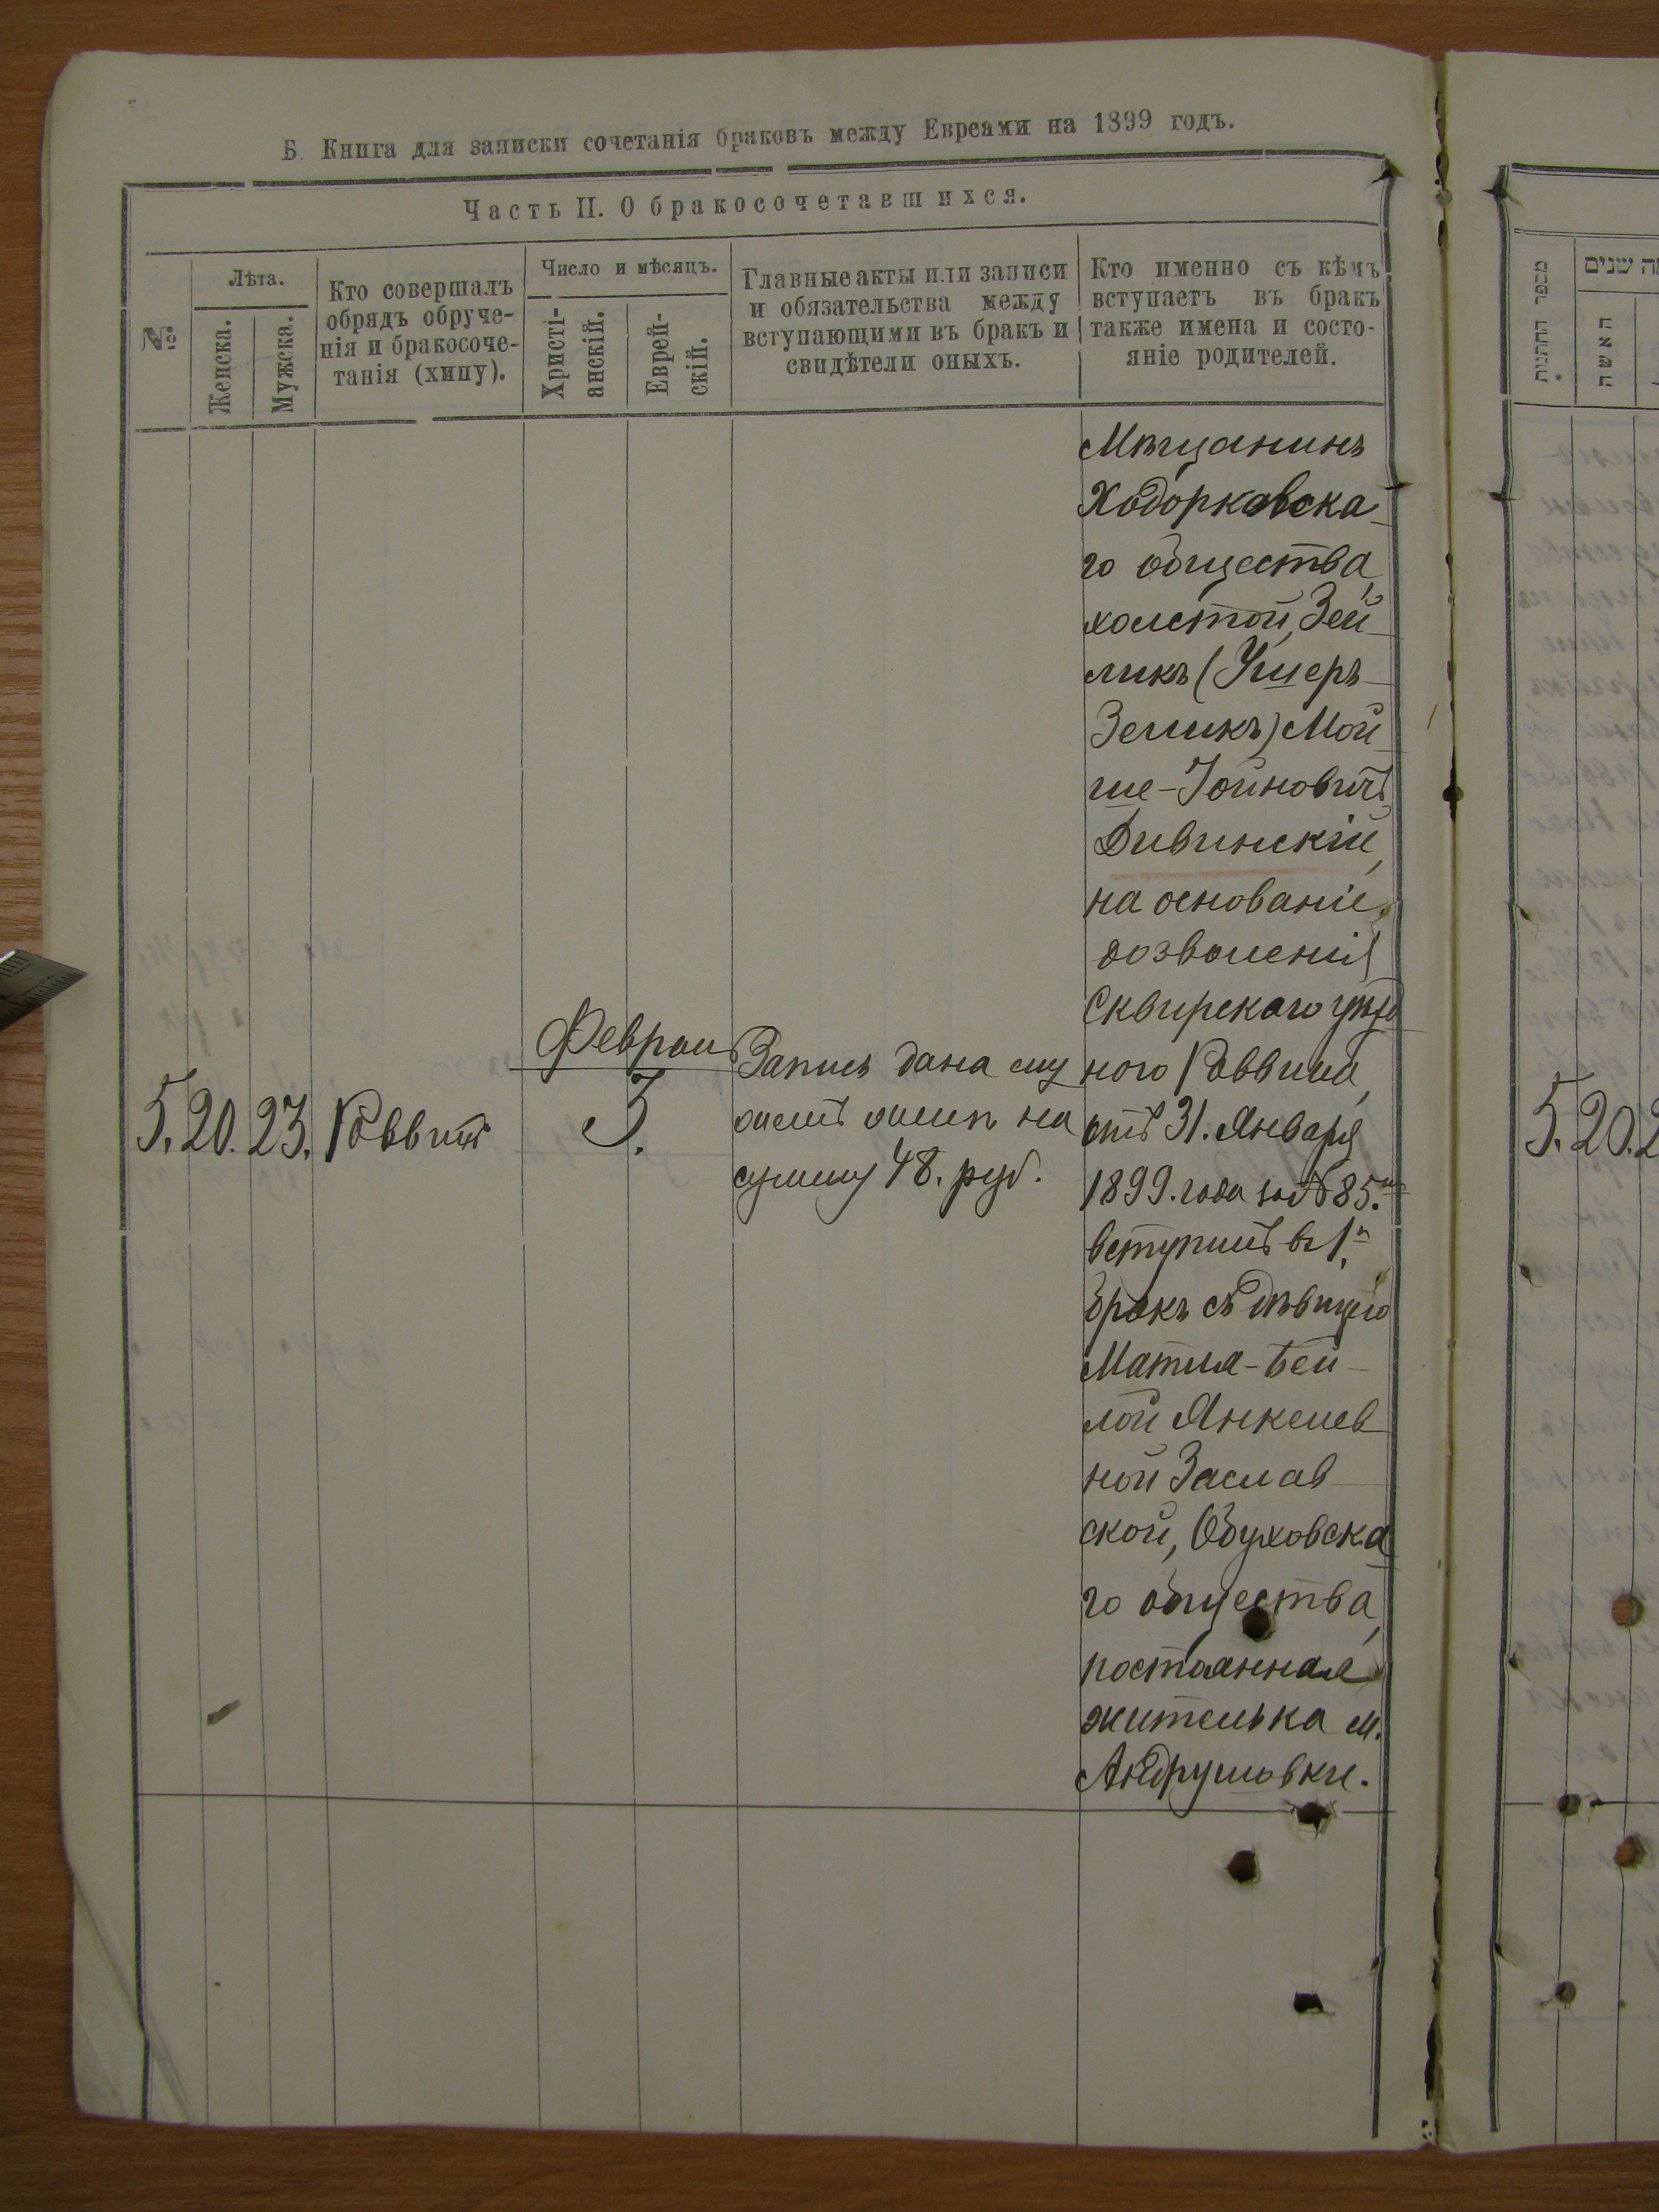 Б. Книга для записки сочетанія браковъ между Евреями на 1899 годъ.
Часть II. О бракосочетавшихся.
№
Лѣта.
Женска.
Мужска.
Кто совершалъ
обрядъ обруче-
нія и бракосоче-
танія (хипу).
Число и мѣсяцъ.
Христі-
анскій.
Еврей-
скій.
Главные акты или записи
и обязательства между
вступающими въ бракъ и
свидѣтели оныхъ.
Кто именно съ кѣмъ
вступаетъ въ бракъ
также имена и состо-
яніе родителей.
5. 20. 23. Раввинъ
Феврал
5.
Запись дана
на
сумму 48. руб.
Мѣщанинъ
Ходорковска-
го общества,
холстой, Зей-
ликъ (Ушеръ-
Зеликъ) Мой-
ше-Іойновичъ
Дивинскій,
на основаніи
дозволенія
Сквирскаго уѣзд
ного Раввина,
отъ 31. Января
1899. года за № 85.
вступилъ въ 1.й
бракъ съ дѣвицею
Матля-Бей-
лой Янкелев
ной Заслав-
ской, Обуховска-
го общества,
постоянная
жителька м.
Андрушовки.
מספר החתנות
ה שנים
האשה
5. 20. 2